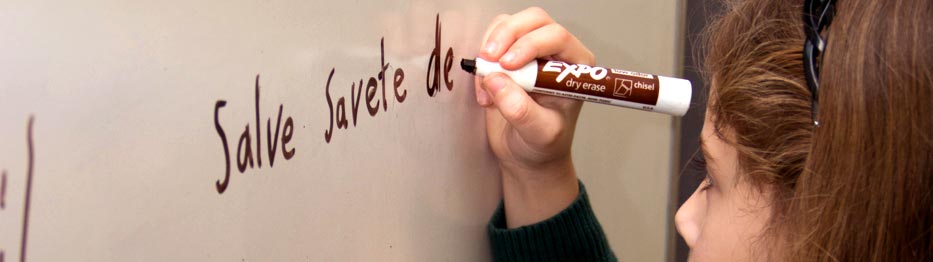 Salve Savete de
EXPO
dry erase
chisel